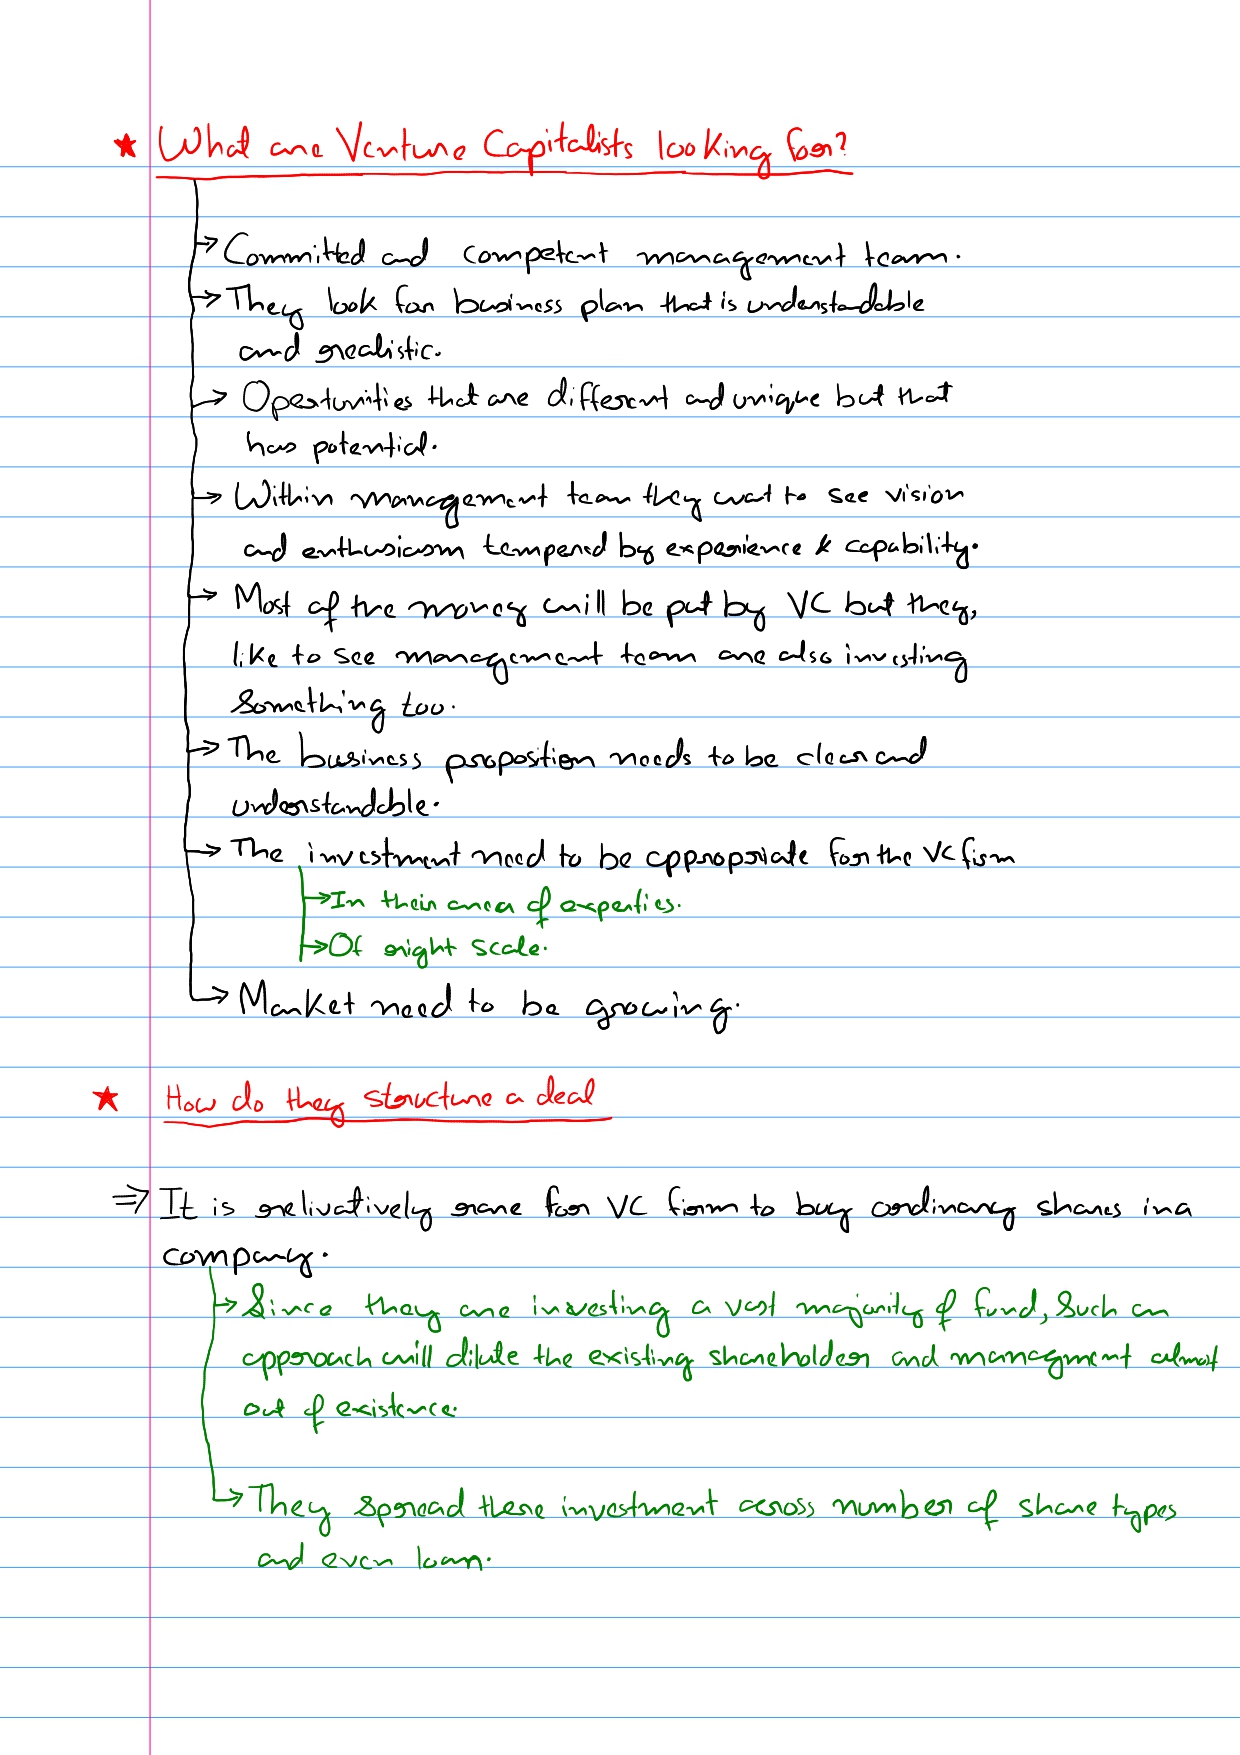 ★ What are Venture Capitalists looking for?
→ Committed and competent management team.
→ They look for business plan that is understandable
and realistic.
→ Opertunities that are different and unique but that
has potential.
→ Within management team they wat to see vision
and enthusiasm tempered by experience & capability.
→ Most of the money will be put by VC but they,
like to see management team are also investing
something too.
→ The business proposition needs to be clear and
understandable.
→ The investment need to be appropriate for the VC firm
→ In their area of experties.
→ Of right scale.
→ Market need to be growing.
★ How do they structure a deal
⇒ It is relivatively rare for VC firm to buy ordinary shares in a
company.
→ Since they are investing a vast majority of fund, such an
approach will dilute the existing shareholder and managment almost
out of existence.
→ They spread there investment across number of share types
and even loan.